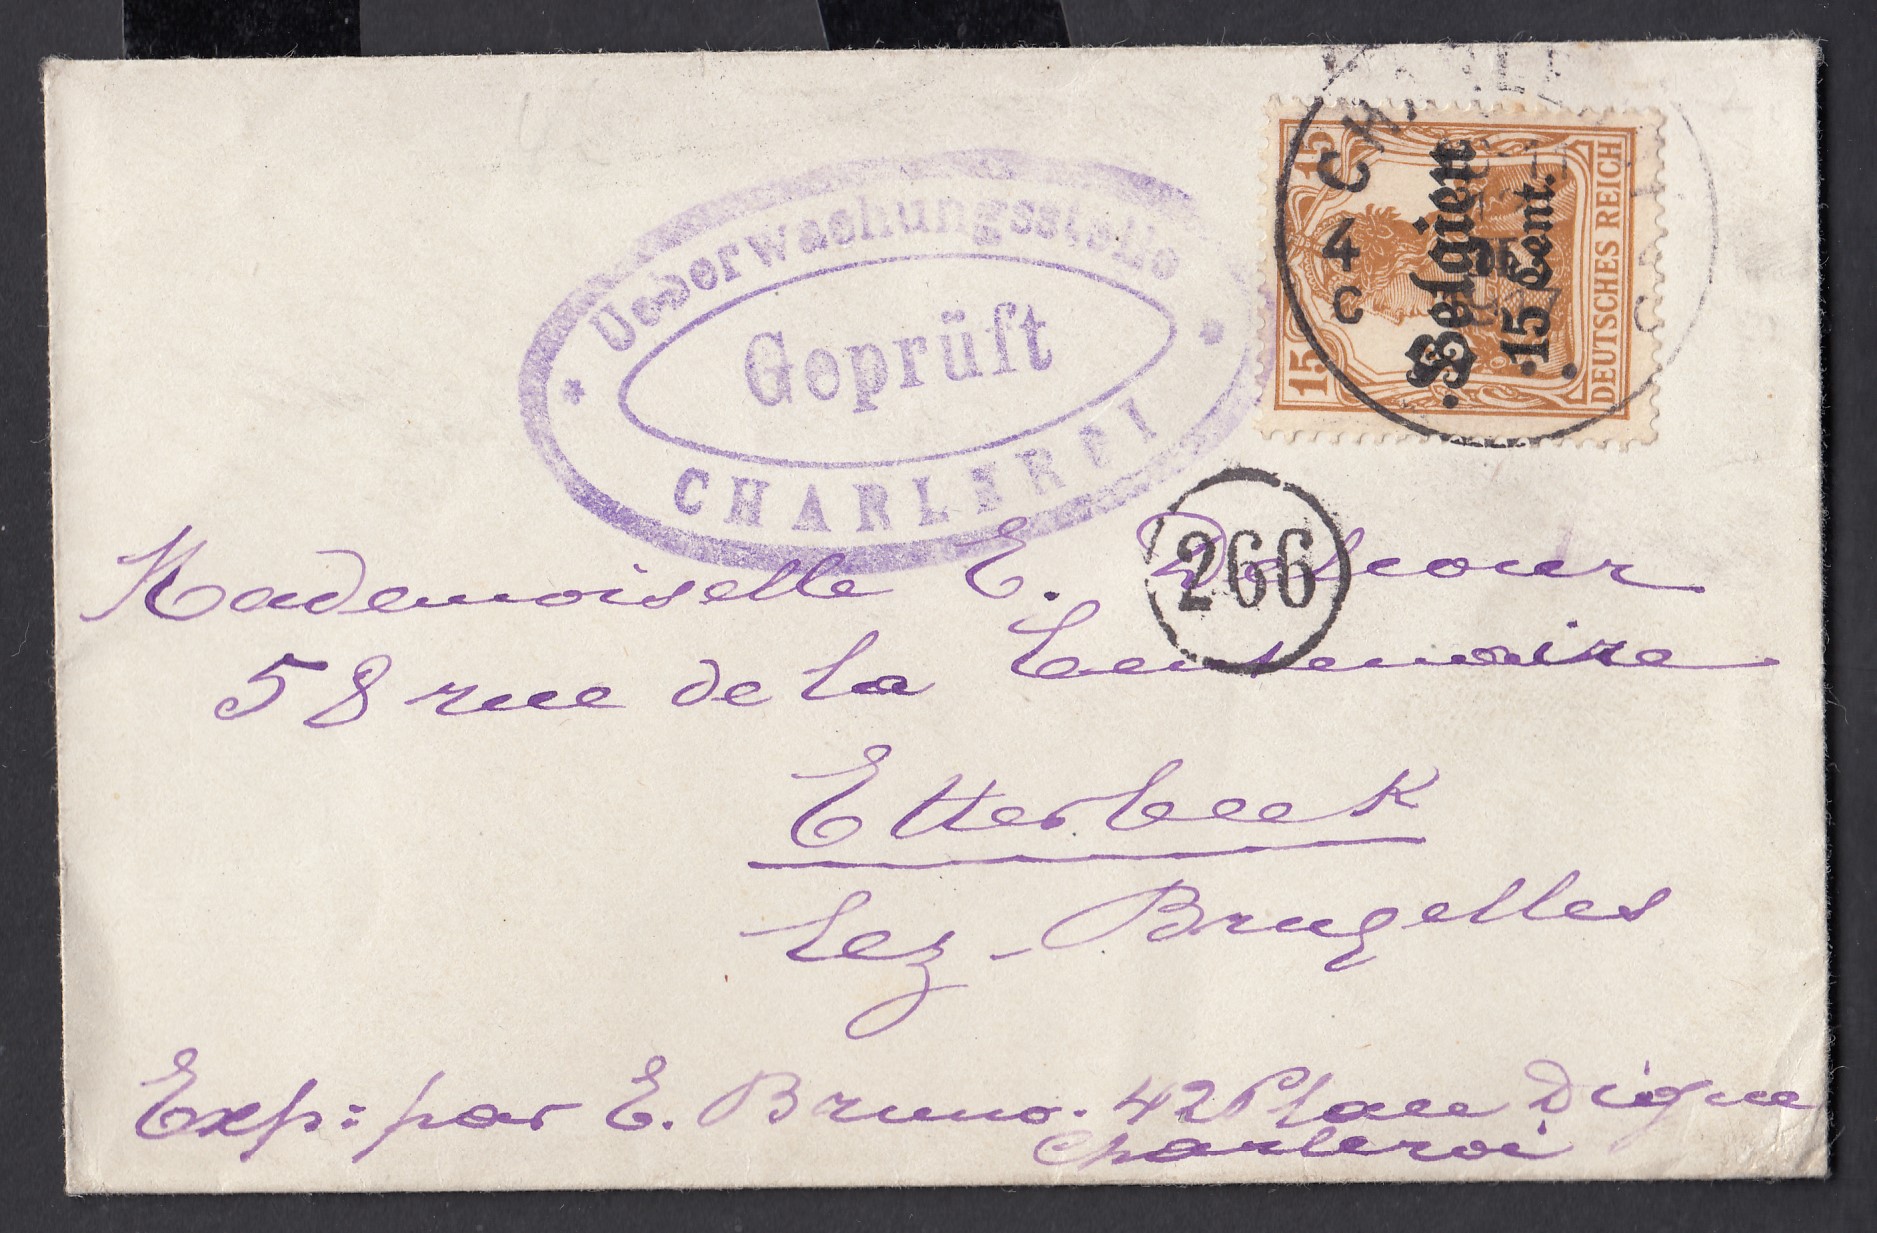 * Ueberwachungsstelle *
Geprüft
CHARLEROI
15 15
Belgien
15 Cent.
DEUTSCHES REICH
4
C
C
266
Mademoiselle E.
58 rue de la Centenaire
Etterbeek
Lez-Bruxelles
Exp: par E. Bruno. 42 Place Digue
Charleroi